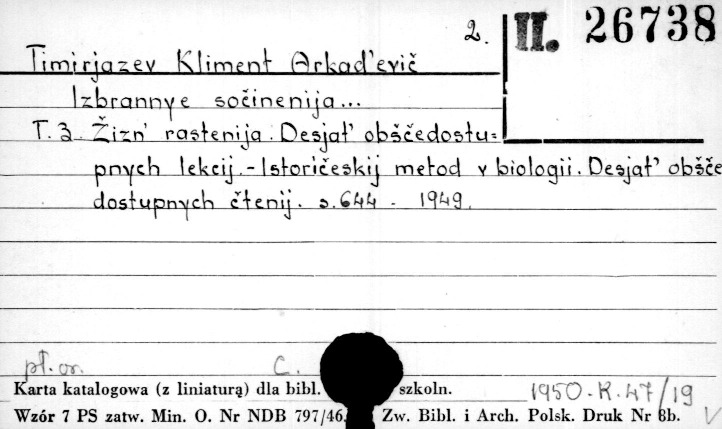 2.
II. 26738
Timirjazev Kliment Arkad'evič
Izbrannye sočinenija...
T. 3. Žizn' rastenija. Desjat' obščedostu=
pnych lekcij.-Istoričeskij metod v biologii. Desjat' obšče
dostupnych čtenij. s. 644 - 1949.
pł. or. C.
Karta katalogowa (z liniaturą) dla bibl. szkoln.
1950.K.47/19
Wzór 7 PS zatw. Min. O. Nr NDB 797/46. Zw. Bibl. i Arch. Polsk. Druk Nr 8b.